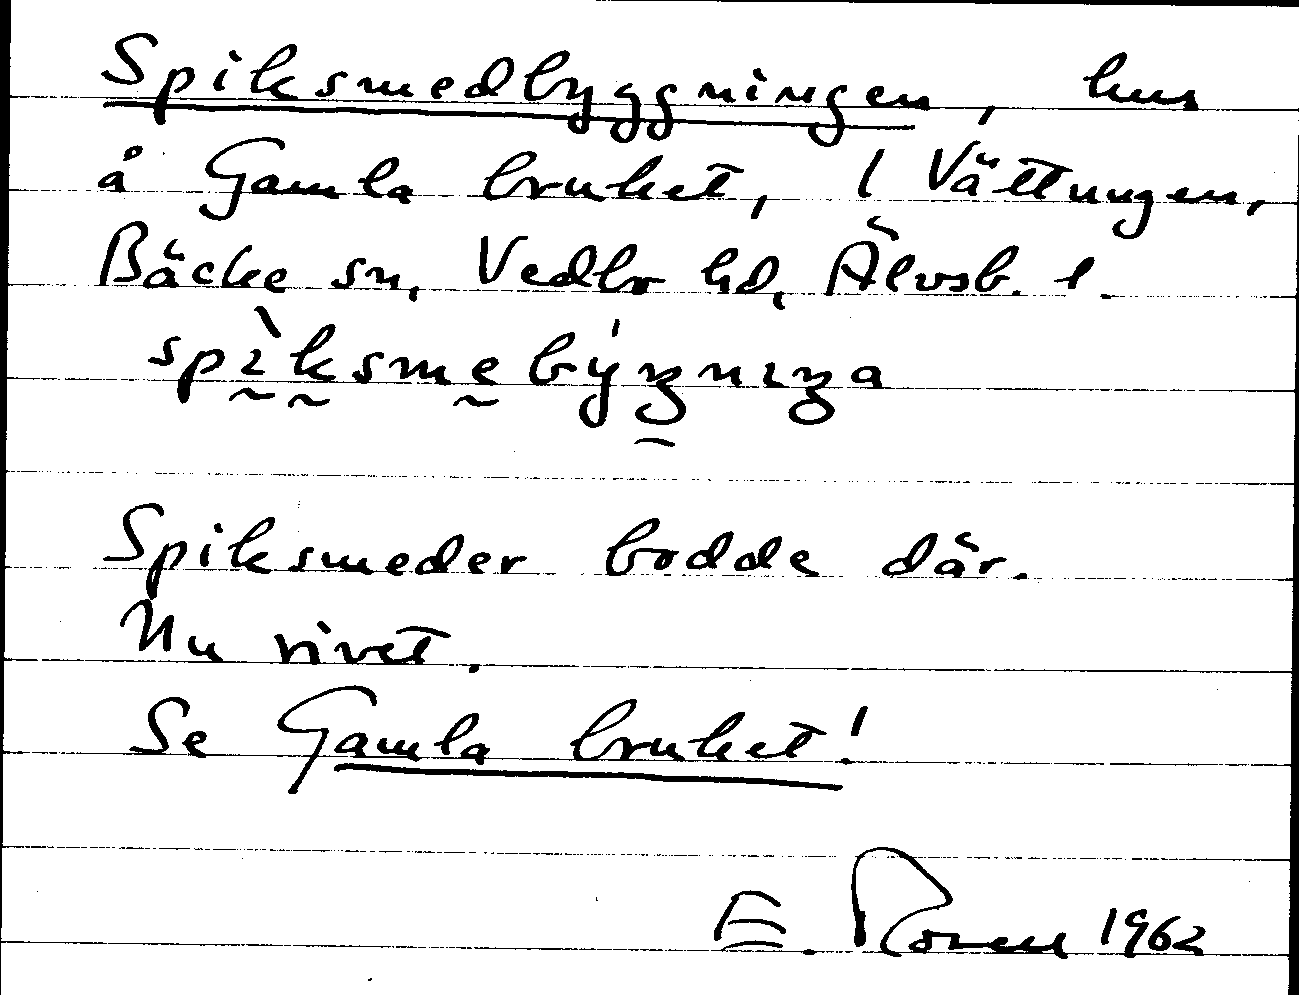 Spiksmedbyggningen, hus
å Gamla bruket, 1 Vättungen,
Bäcke sn, Vedbo hd, Älvsb. l.
Spiksmeder bodde där.
Nu rivet.
Se Gamla bruket!
E. 1962